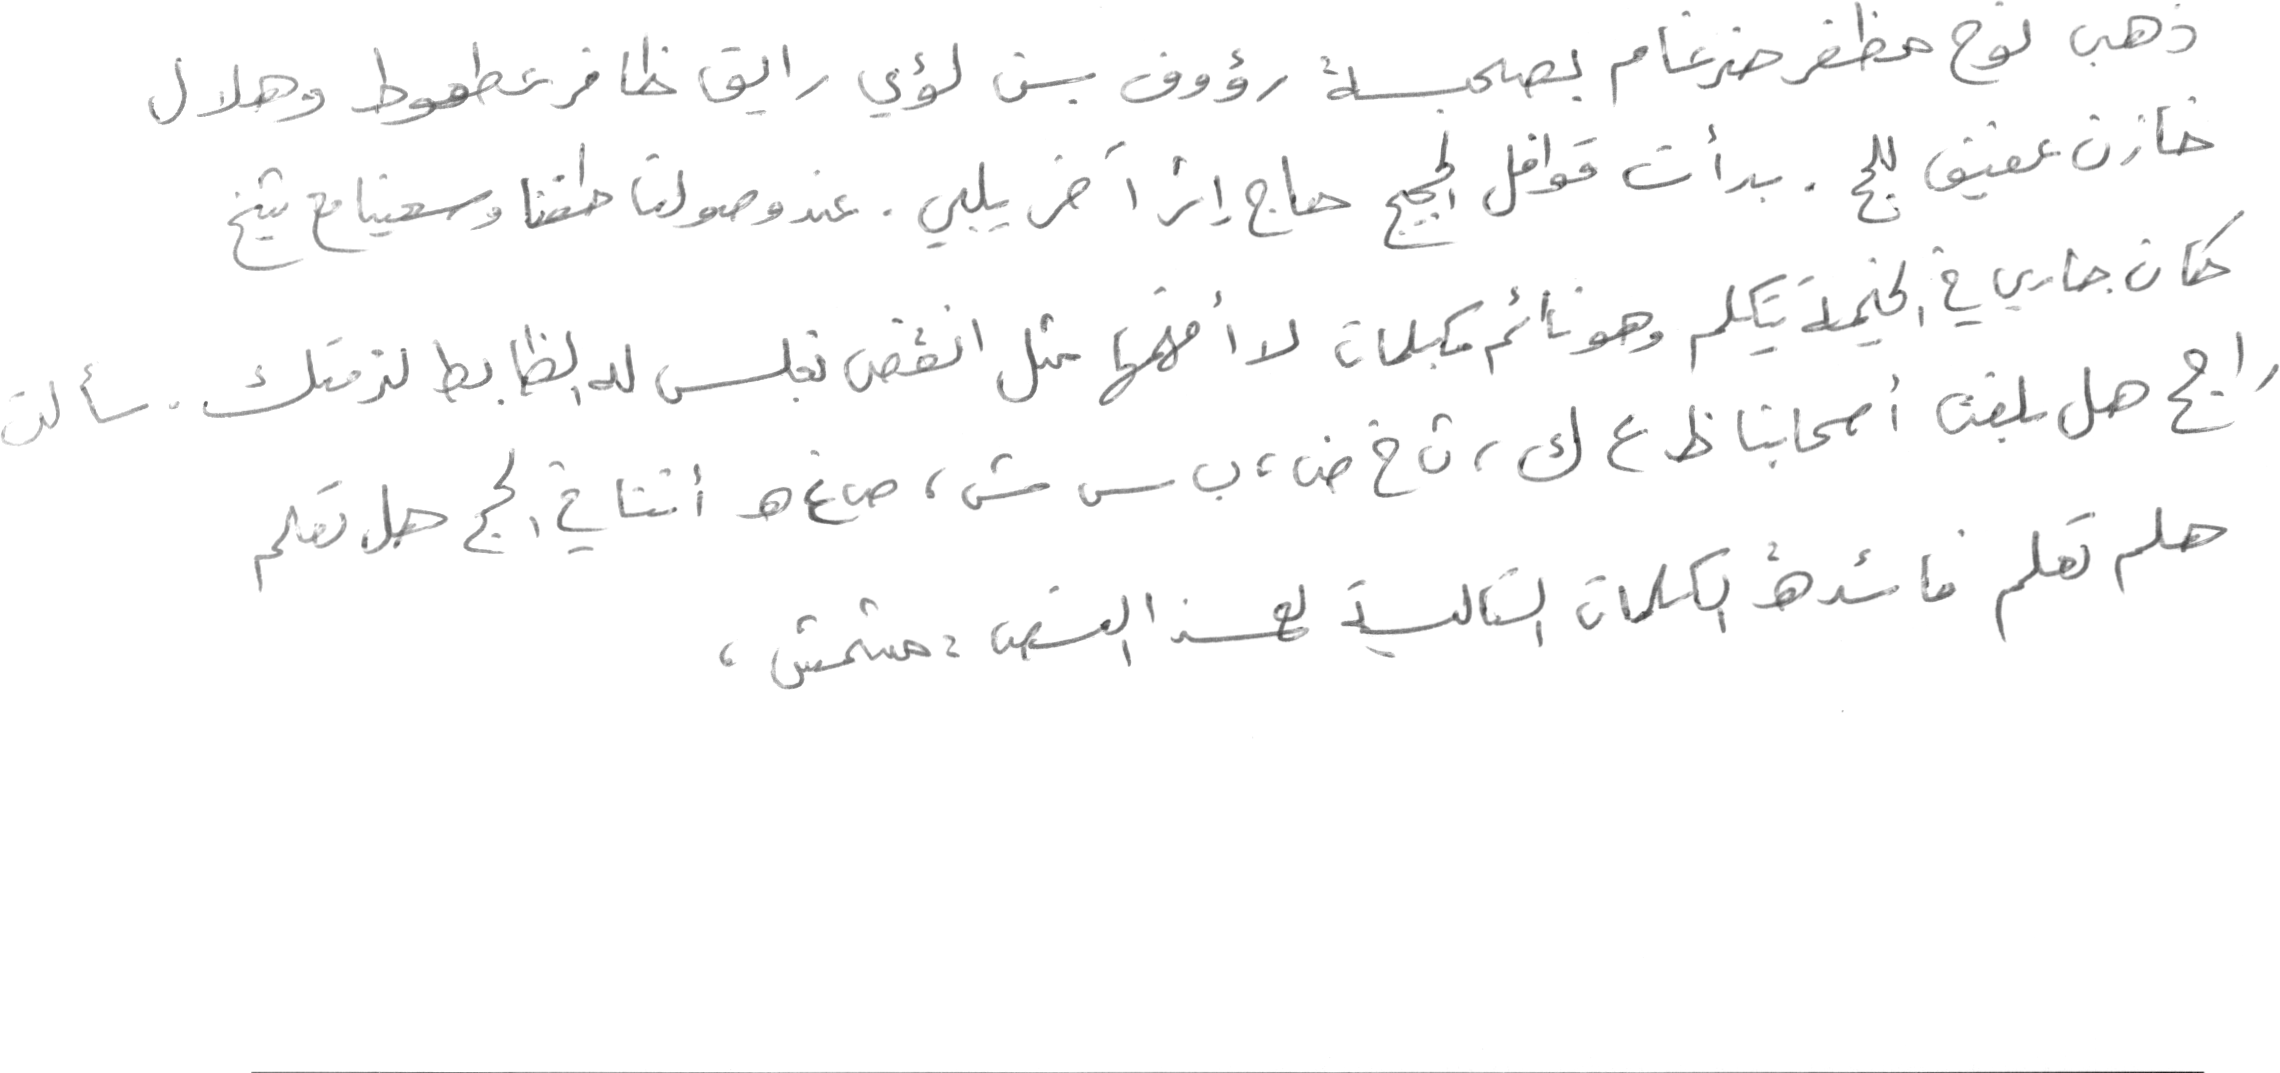 ذهب نوح مظفر ضرغام بصحبة رؤوف بن لؤي رايق ظافر عطعوط وهلال
خازن عفيف للحج . بدأت قوافل الحجيج حاج إثر آخر يلبي . عند وصولنا طفنا وسعينا مع شيخ
كان جاري في الخيمة يتكلم وهو نائم بكلمات لا أفهمها مثل انقض نعلس له الظابط لترمتك . سألت
راجح هل بلغت أصحابنا ظ ع ك ، ث خ ض ، ب س ش ، ص غ هـ أننا في الحج هل تعلم
هلم تعلم فائدة الكلمات التالية لهذا النص : مشمش ،